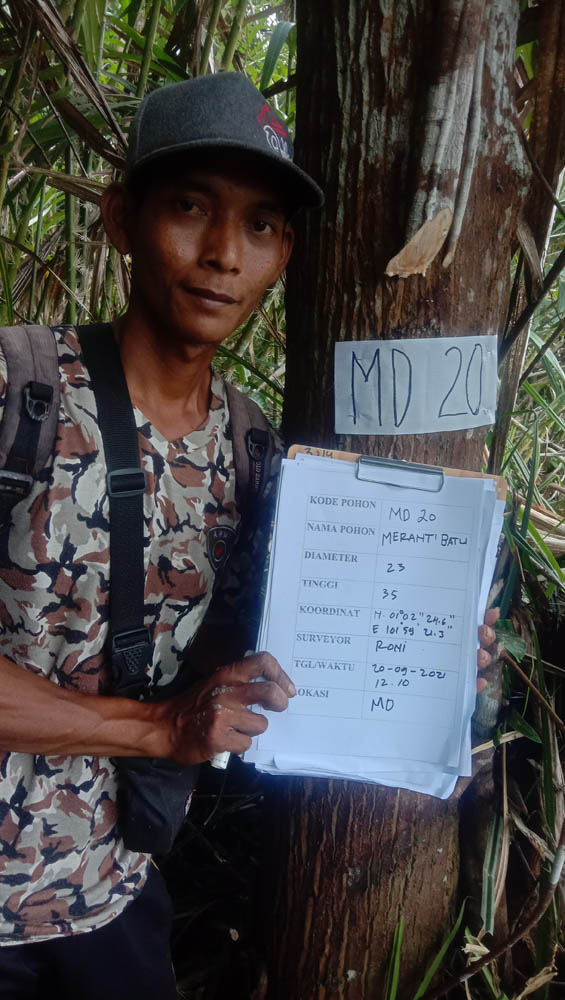 MD 20
KODE POHON MD 20
NAMA POHON MERANTI BATU
DIAMETER 23
TINGGI 35
KOORDINAT N. 01°02" 24.6"
E 101°59' 21.3"
SURVEYOR RONI
TGL/WAKTU 20-09-2021
12.10
LOKASI MD